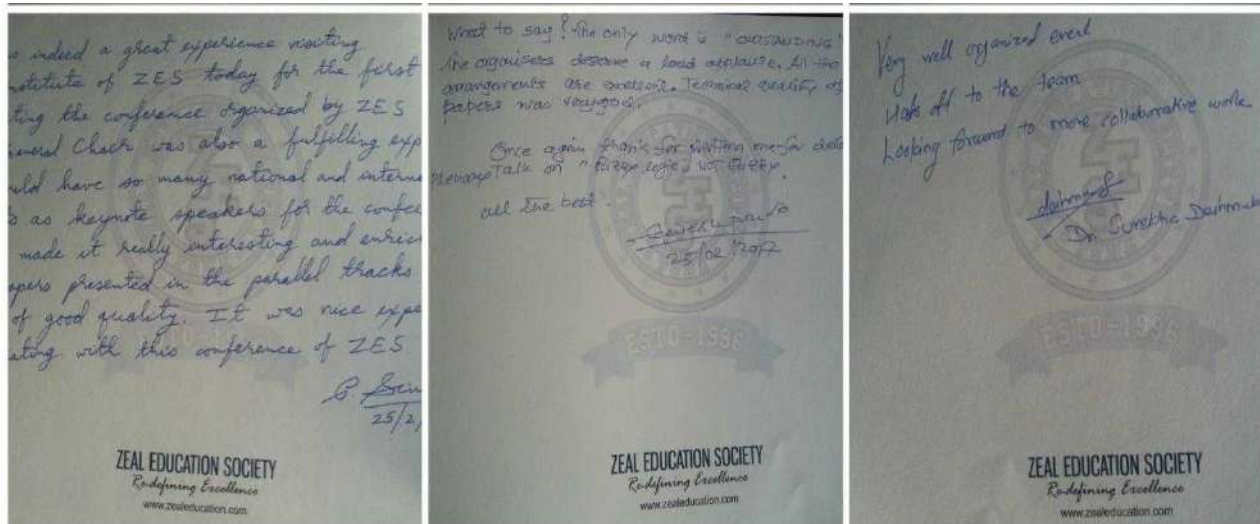 indeed a great experience visiting
stitute of ZES today for the first
ting the conference organized by ZES
neral Chair was also a fulfilling exp
uld have so many national and interna
as keynote speakers for the confe
made it really interesting and enric
apers presented in the parallel tracks
of good quality. It was nice expe
ating with this conference of ZES.
25/2/
ESTD-1996
ZEAL EDUCATION SOCIETY
Redefining Excellence
www.zealeducation.com
What to say! The only word is "OUTSTANDING"
The organisers deserve a loud applause. All the
arrangements are excellent. Technical quality of
papers was very good.
Once again thanks for
Talk on "Fuzzy logic is not Fuzzy.
all the best.
25/02/2017
ESTD-1996
ZEAL EDUCATION SOCIETY
Redefining Excellence
www.zealeducation.com
Very well organized event
Hats off to the team
Looking forward to more collaborative work
Dr. Surekha
ESTD-1996
ZEAL EDUCATION SOCIETY
Redefining Excellence
www.zealeducation.com